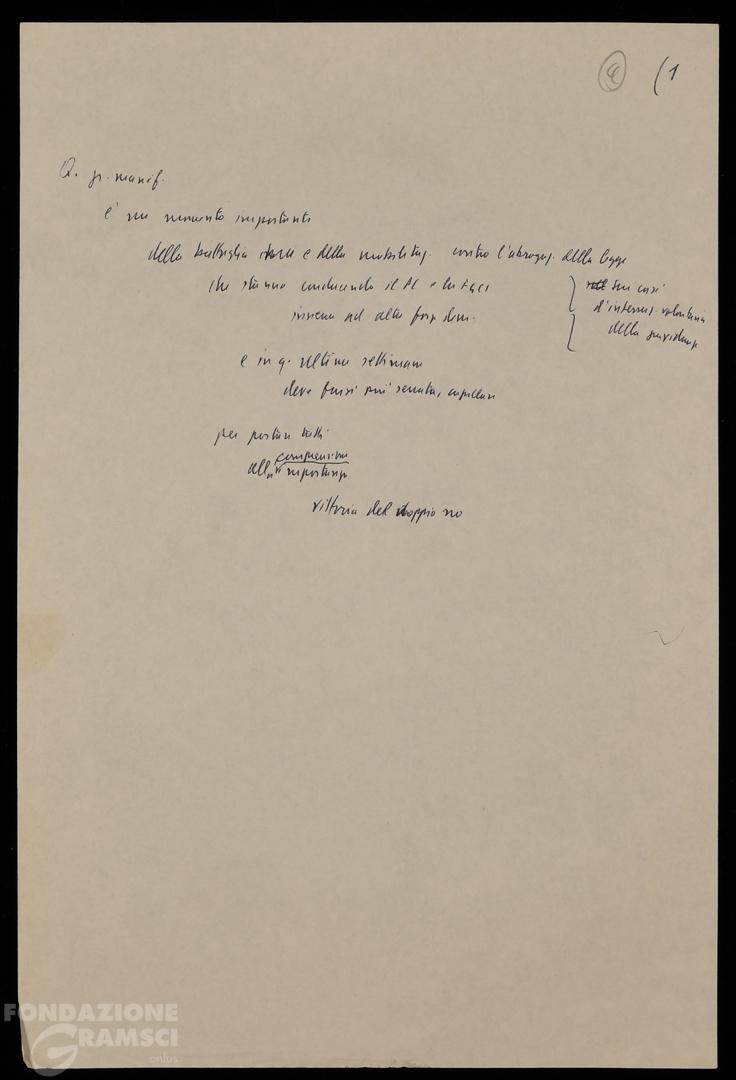 (1
Q. gr. manif.
è un momento importante
della battaglia e della mobilitaz. contro l'abrogaz. della legge
che stanno conducendo il PC e la FGCI
insieme ad altre forze dem.
sui casi
d'interruz. volontaria
della gravidanza
e in q. ultime settimane
deve farsi più serrata, capillare
per portare tutti
comprensione
alla importanza
vittoria del doppio no
FONDAZIONE
GRAMSCI
onlus